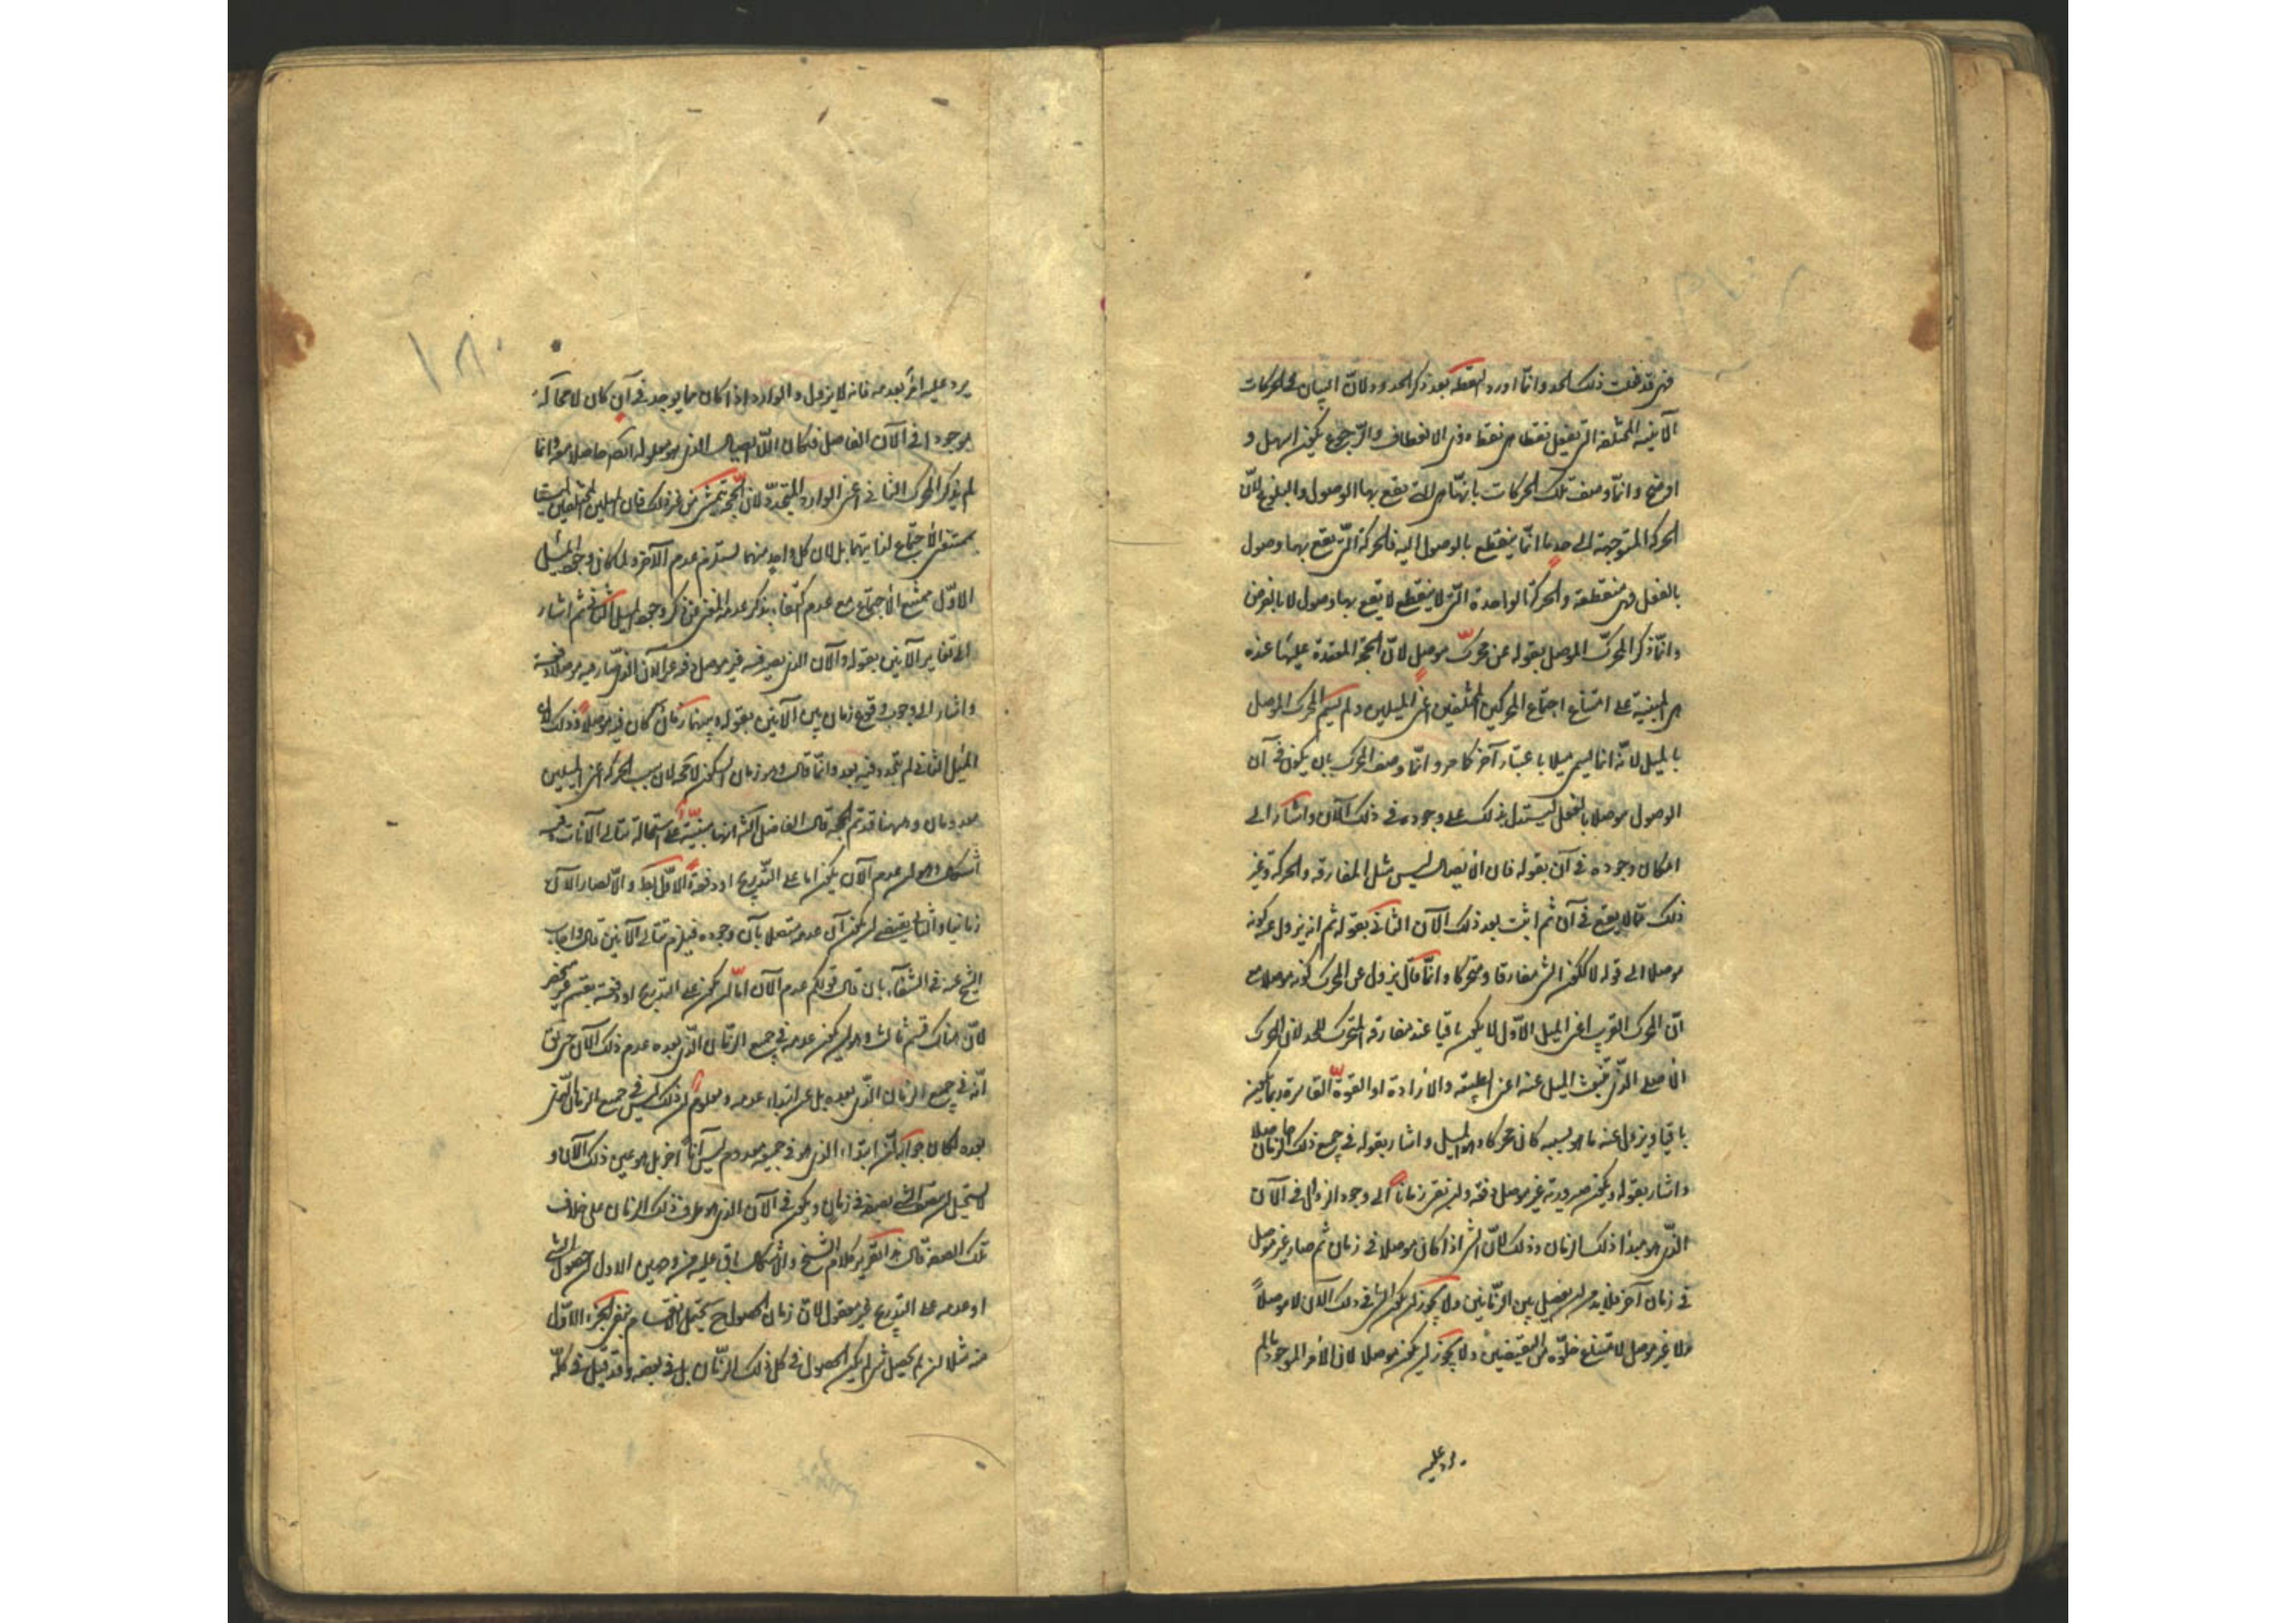 فهى قد فعلت ذلك الحد وانما اورد النقطة بعد ذكر الحدود لان البيان فى الحركات
الاينية المختلفة التى تفعل نقطا هى نقط وفى الانعطاف والرجوع يكون اسهل و
اوضح وانما وصف تلك الحركات بانها هى التى يقع بها الوصول والبلوغ لان
الحركة المتوجهة الى حد ما انما ينقطع بالوصول اليه فالحركة التى يقع بها وصول
بالفعل فهى منقطعة والحركة الواحدة التى لا ينقطع لا يقع بها وصول الا بالفرض
وانما ذكر المحرك الموصل بقوله عن محرك موصل لان الحجة المعتمدة عليها عنده
هى المبنية على امتناع اجتماع المحركين المختلفين اعنى الميلين ولم يسم المحرك الموصل
بالميل لانه انما يسمى ميلا باعتبار آخر كما مر وانما وصف المحرك بان يكون فى آن
الوصول موصلا بالفعل ليستدل بذلك على وجوده فى ذلك الآن واشار الى
امكان وجوده فى آن بقوله فان الايصال ليس مثل المفارقة والحركة وغير
ذلك مما لا يقع فى آن ثم اثبت بعد ذلك الآن الثانى بقوله ثم انه يزول عنه كونه
موصلا الى قوله لا لكون الشئ مفارقا ومتحركا وانما قال يزول عن المحرك كونه موصلا مع
ان المحرك القريب اعنى الميل الاول لا يكون باقيا عند مفارقة المتحرك للحد لان المحرك
الاصلى الذى ينبعث الميل عنه اعنى الطبيعة والارادة او القوة القاسرة ربما يكون
باقيا ويزول عنه ما هو بسببه كان محركا وهو الميل واشار بقوله فى جميع ذلك الزمان حاصلا
واشار بقوله ويكون صيرورته غير موصل دفعة وان بقى زمانا الى وجود الزوال فى الآن
الذى هو مبدأ ذلك الزمان وذلك لان الشئ اذا كان موصلا فى زمان ثم صار غير موصل
فى زمان آخر فلا بد من آن يفصل بين الزمانين ولا يجوز ان يكون الشئ فى ذلك الآن لا موصلا
ولا غير موصل لامتناع خلوه من النقيضين ولا يجوز ان يكون موصلا لان الامر الموجود ما لم
يرد عليه
يرد عليه امر يعدمه فانه لا يزول والوارد اذا كان مما يوجد فى آن كان لا محالة
موجودا فى الآن الفاصل فكان اللاايصال الذى هو معلوله ايضا حاصلا معه وانما
لم يذكر المحرك الثانى اعنى الوارد المتجدد لان الحجة تتمشى من غير ذلك فان الميلين المختلفين ليسا
بممتنعى الاجتماع لذاتيهما بل لان كل واحد منهما يستلزم عدم الآخر ولما كان وجود الميل
الاول ممتنع الاجتماع مع عدمه اكتفى بذكر عدمه المغنى عن ذكر وجود الميل الثانى ثم اشار
الى تغاير الآنين بقوله والآن الذى يصير فيه غير موصل دفعة غير الآن الذى صار فيه موصلا دفعة
واشار الى وجوب وقوع زمان بين الآنين بقوله وبينهما زمان كان فيه موصلا وذلك لان
الميل الثانى لم يتجدد فيه بعد وانما قال وهو زمان السكون لا محالة لان سبب الحركة اعنى الميلين
معدومان وههنا قد تم الحجة قال الفاضل الشارح انها مبنية على استحالة تتالى الآنات وفيه
اشكال وهو ان عدم الآن يكون اما على التدريج او دفعة والاول بط والا لصار الآن
زمانيا والثانى يقتضى ان يكون آن عدمه متصلا بآن وجوده فيلزم تتالى الآنين قال واجاب
الشيخ عنه فى الشفاء بان قال قولكم عدم الآن اما ان يكون على التدريج او دفعة تقسيم غير منحصر
لان هناك قسم ثالث وهو ان يكون عدمه فى جميع الزمان الذى بعده عدم ذلك الآن حق
انه فى جميع الزمان الذى بعده بل عن ابتداء عدمه ومعلوم ان ذلك ليس فى جميع الزمان الذى
بعده لكان جوابنا ان ابتداء الذى هو فى جميعه معدوم ليس آنا آخر بل هو عين ذلك الآن و
لا يستحيل ان يتصف الشئ بصفة فى زمان ويكون فى الآن الذى هو طرف ذلك الزمان على خلاف
تلك الصفة قال هذا تقرير كلام الشيخ والاشكال باق عليه من وجهين الاول ان حصول الشئ
او عدمه على التدريج غير معقول لان زمان الحصول ح يحتمل الانقسام ففى الجزء الاول
منه مثلا ان لم يحصل شئ لم يكن الحصول فى كل ذلك الزمان بل فى بعضه وقد قيل فى كله